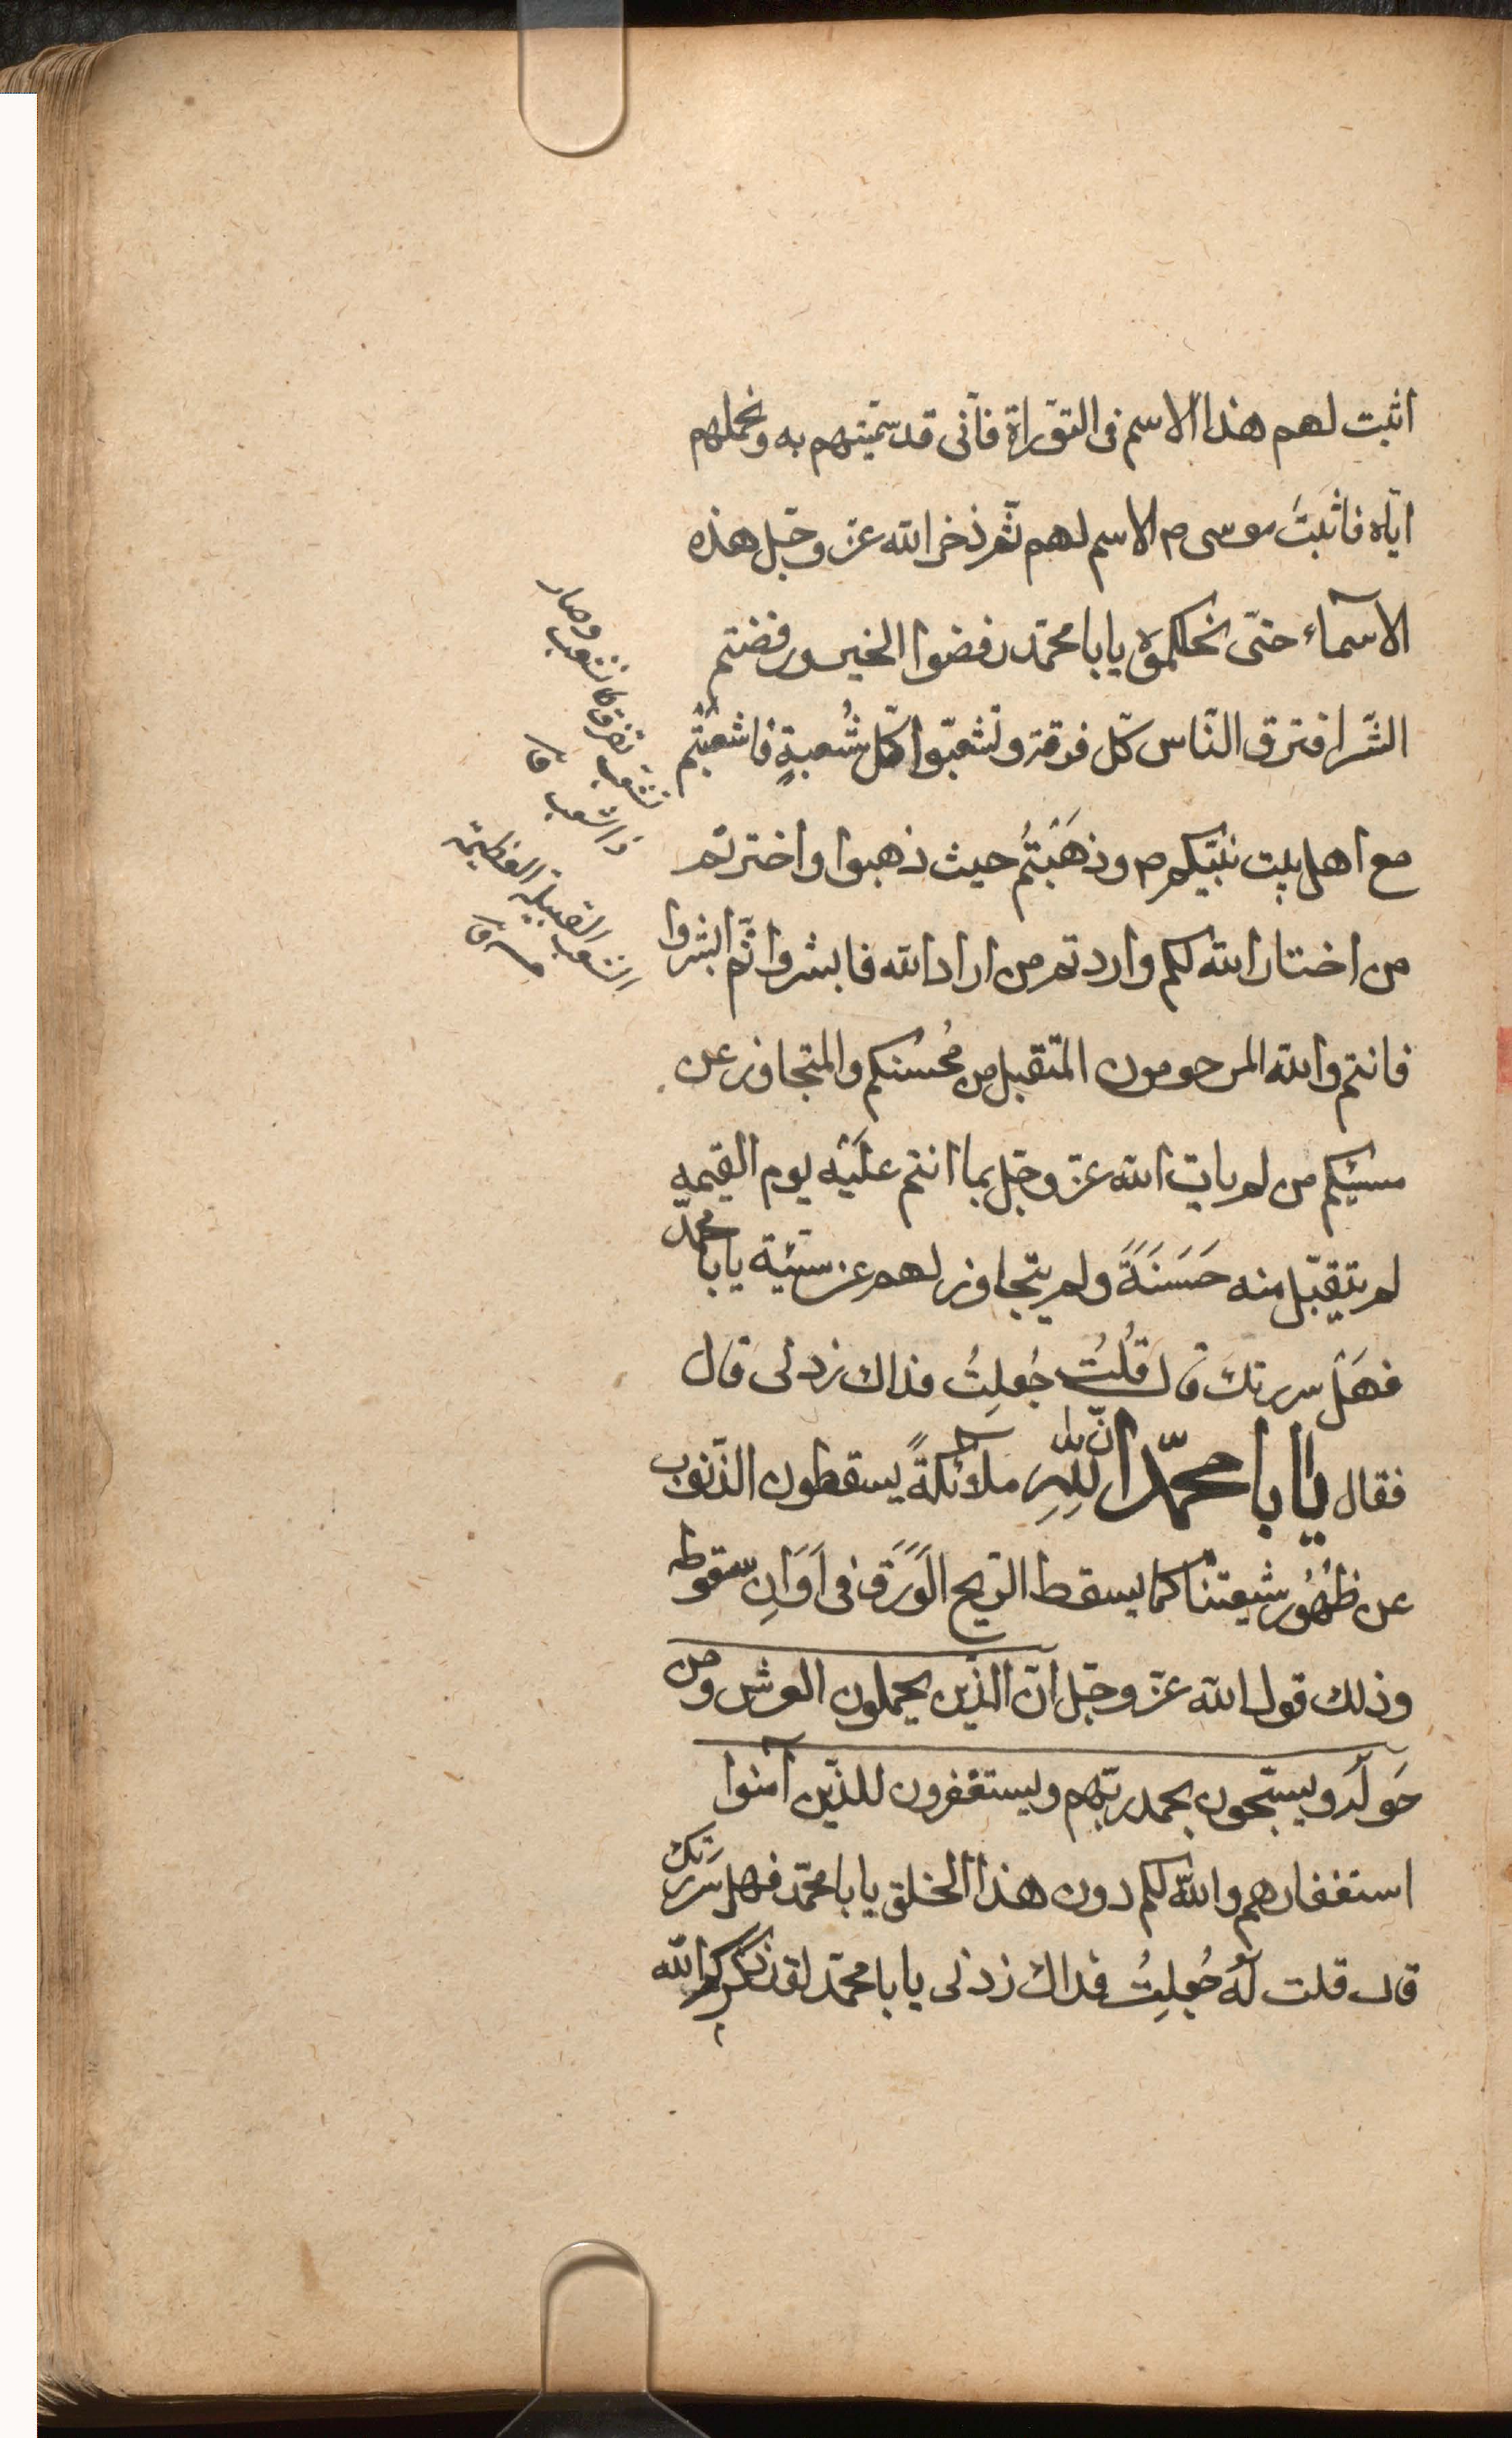 اثبت لهم هذا الاسم فى التوّراة فانّى قد سمّيتهم به ونحلتهم
ايّاه فاثبَتَ موسى م الاسم لهم ثمّ ذخر الله عزّ وجّل هذه
الاسماء حتّى نحلكموَه يابا محمّد رفضوا الخير ورفضتم
الشّر افترق النّاس كّل فرقة وتشعّبوا كّل شُعبةٍ فاشعبتُم
مع اهل بيت نبيّكم م وذهَبَتُم حيث ذهبوا واخترتم
من اختار الله لكم واردتم من اراد الله فابشروا ثّم ابشروا
فانتم والله المرحومون المتقبل من مُحسنكم والمتجاوز عن
مسيئكم من لم يات الله عزّ وجّل بما انتم علَيْه يوم القيمه
لم يتقبّل منه حَسَنَةً ولم يتجاوز لهم عن سيّئة يابا محمّد
فهَل سررتكَ قال قُلتُ جُعلِتُ فداك زدنى قال
فقال يابا محمّد انّ لِلّهِ ملائكةً يسقطون الذّنوب
عن ظُهُور شيعتنا كما يسقط الرّيح الوَرَق فى اَوَانِ سقوطه
وذلك قول الله عزّ وجّل انّ الذّين يحملون العرش ومن
حَولَه ويسبّحون بحمد ربّهم ويستغفرون للذّين آمنوا
استغفارهم والله لكم دون هذا الخلق يابا محمّد فهل سررتك
قال قلت لَهُ جُعلِتُ فداك زدنى يابا محمّد لقد ذكركم الله
تشعب تفرق كانشعب وصار
ذا شعب قا
الشعب القبيلة العظيمة
قا